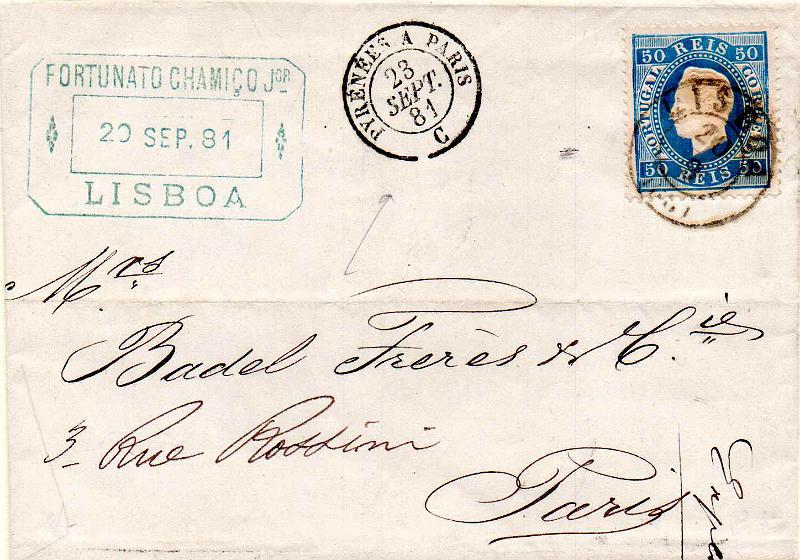 FORTUNATO CHAMIÇO JOR
20 SEP. 81
LISBOA
PYRÉNÉES A PARIS
23
SEPT.
81
C
50 REIS 50
PORTUGAL CORREIO
50 REIS 50
LIS
Mrs
Badel Frères & Cie
3 - Rue Rossini
Paris